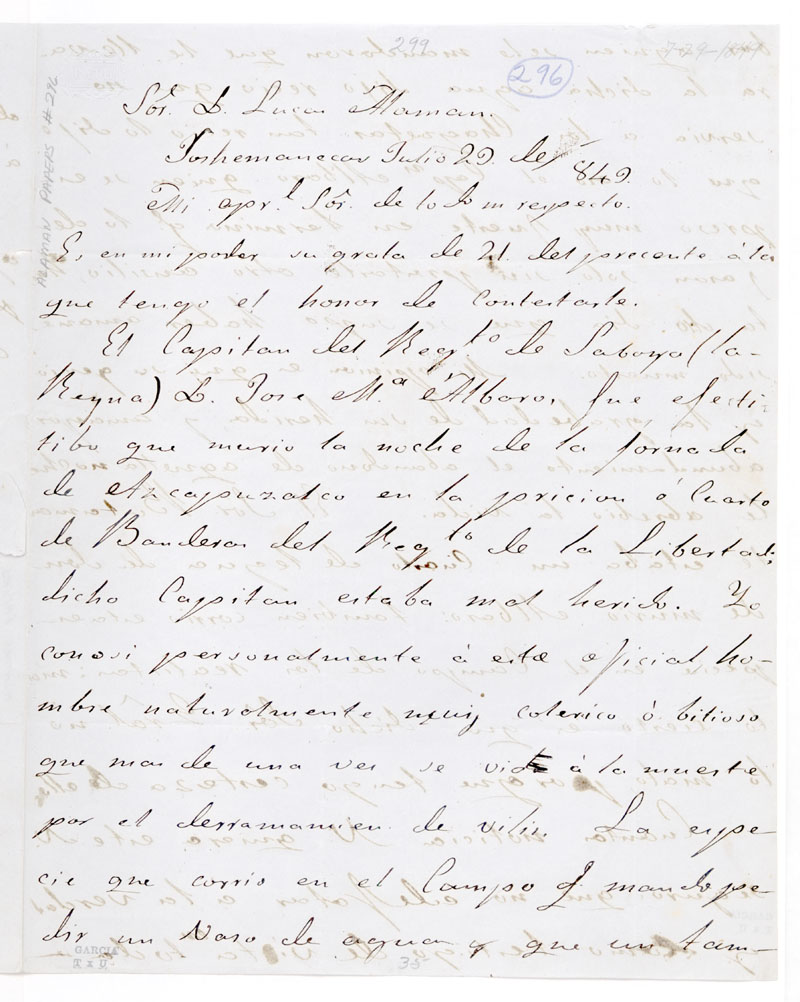 299
296
7-29-1849
ALAMAN PAPERS #296
Sõr. D. Lucas Alaman.
Julio 29. de 849.
Mi apr.l Sõr. de todo mi respeto.
Es, en mi poder su grata de 21. del precente á la
que tengo el honor de contestarle.
El Capitan del Reg.to de Saboya (la
Reyna) D. Jose M.a Albaros, fue efecti
tibo que murio la noche de la jornada
de Azcapuzalco en la pricion ó Cuarto
de Banderas del Reg.to de la Libertad;
dicho Capitan estaba mal herido. Yo
conosi personalmente á este oficial, ho-
mbre naturalmente muy colerico ó bilioso
que mas de una ves se vio á la muerte
por el derramamien. de vilis. La espe-
cie que corrio en el Campo q mando pe-
dir un Vaso de agua y que un tam-
GARCIA
35